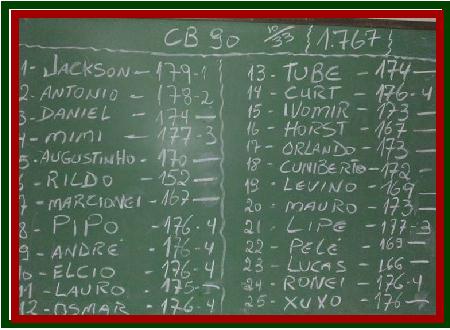 CB 90 10/33 {1.767}
1- JACKSON - 179-1
2- ANTONIO - 178-2
3- DANIEL - 174 -
4- MIMI - 177-3
5- AUGUSTINHO - 170 -
6- RILDO - 152 -
7- MARCIONEI - 167 -
8- PIPO - 176-4
9- ANDRÉ - 176-4
10- ELCIO - 176-4
11- LAURO - 175 -
12- OSMAR - 176-4
13- TUBE - 174 -
14- CURT - 176-4
15- IVOMIR - 173 -
16- HORST - 167 -
17- ORLANDO - 173 -
18- CUNIBERTO - 172 -
19- LEVINO - 169 -
20- MAURO - 173 -
21- LIPE - 177-3
22- PELÉ - 169 -
23- LUCAS - 166 -
24- RONEI - 176-4
25- XUXO - 176 -